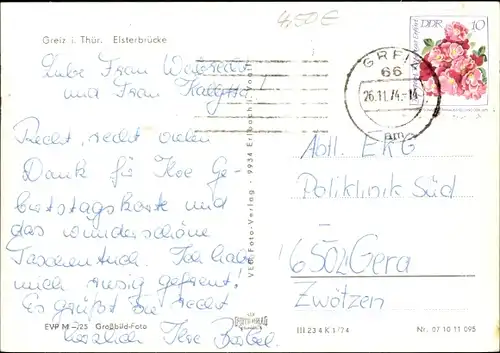 4,50 €
Greiz i. Thür. Elsterbrücke
DDR 10
GREIZ
66
26.11.74.-14
am
Liebe Frau
und Frau
Recht, recht vielen
Dank für Ihre Ge-
burtstagskarte und
das wunderschöne
Taschentuch. Ich habe
mich riesig gefreut!
Es grüßt Sie recht
herzlich Ihre Bärbel.
VEB Foto-Verlag · 9934 Erlbach
Abtl. EKG
Poliklinik Süd
6502 Gera
Zwötzen
EVP M -,25 Großbild-Foto
III 23 4 K 1/74
Nr. 07 10 11 095